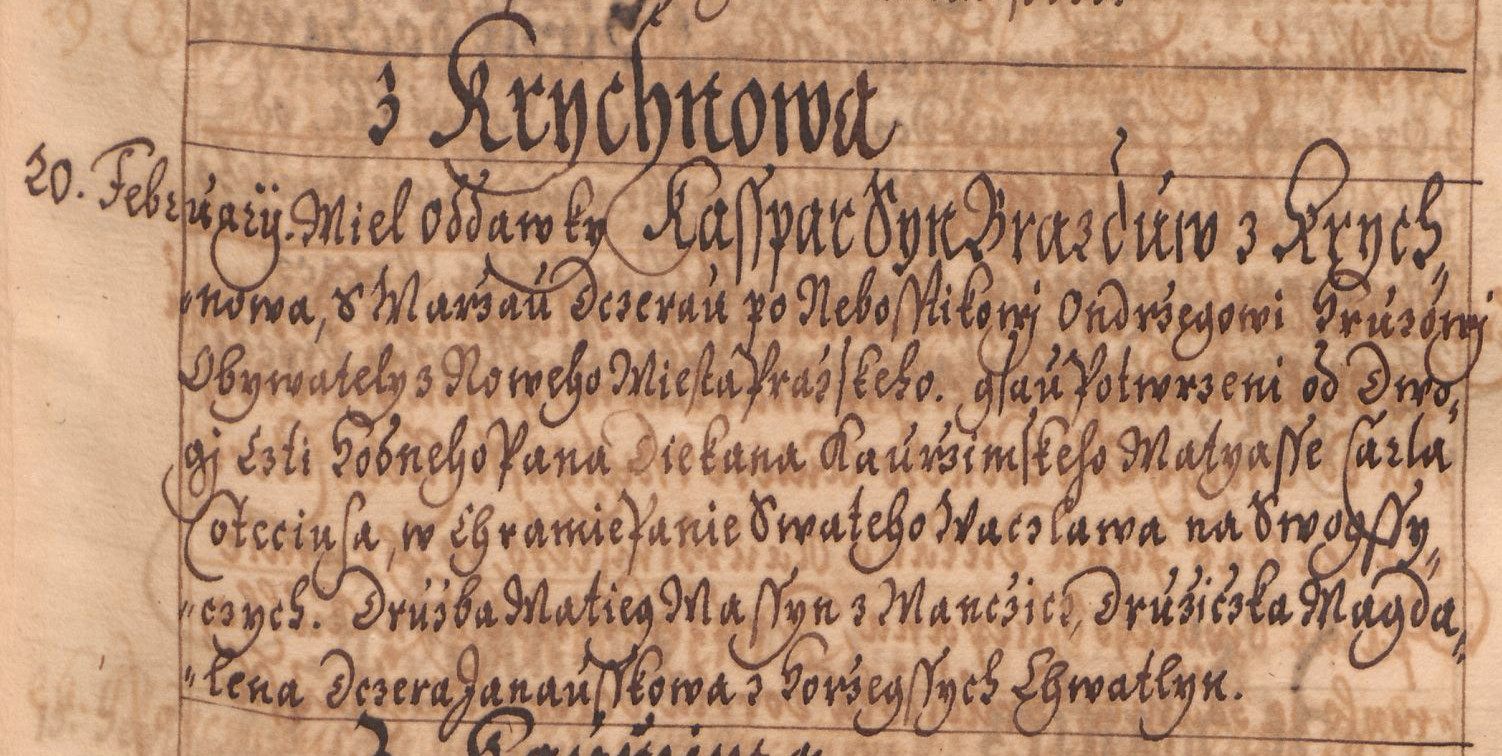 z Krychnowa
20. February. Miel Oddawky Kasspar Syn Brazduw z Krych,,
,,nowa, S Marzau Dczerau po Nebosstikowj Ondrzegowi Hruzowj
Obywately z Noweho Miesta Prazskeho. gsau Potwrzeni od Dwo,,
gj Czti Hodneho Pana Diekana Kaurzimskeho Matyasse Carla
Cotcciusa, w Chramie Panie Swateho Waczlawa na Swogssy,,
,,czych. Druzba Matieg Massyn z Manczicz, Druziczka Magda,,
,,lena Dczera Janausskowa z Horzegssych Chwatlyn.